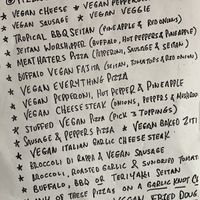 * VEGAN CHEESE * VEGAN PEPPERONI
* VEGAN SAUSAGE * VEGAN VEGGIE
* TROPICAL BBQ SEITAN (PINEAPPLE & RED ONIONS)
* SEITAN WORSHIPPER (BUFFALO, HOT PEPPERS & PINEAPPLE)
* MEATHATERS PIZZA (PEPPERONI, SAUSAGE & SEITAN)
* BUFFALO VEGAN FAJITA (SEITAN, TOMATOES & RED ONION)
* VEGAN EVERYTHING PIZZA
* VEGAN PEPPERONI, HOT PEPPER & PINEAPPLE
* VEGAN CHEESE STEAK (ONIONS, PEPPERS & MUSHRO
* STUFFED VEGAN PIZZA (PICK 3 TOPPINGS)
* SAUSAGE & PEPPERS PIZZA * VEGAN BAKED ZITI
* VEGAN ITALIAN GARLIC CHEESE STEAK
* BROCCOLI DI RAPPA & VEGAN SAUSAGE
* BROCCOLI, ROASTED GARLIC & SUNDRIED TOMATO
* BUFFALO, BBQ OR TERIYAKI SEITAN
OF THESE PIZZAS ON A GARLIC KNOT C
VEGAN FRIED DOUG